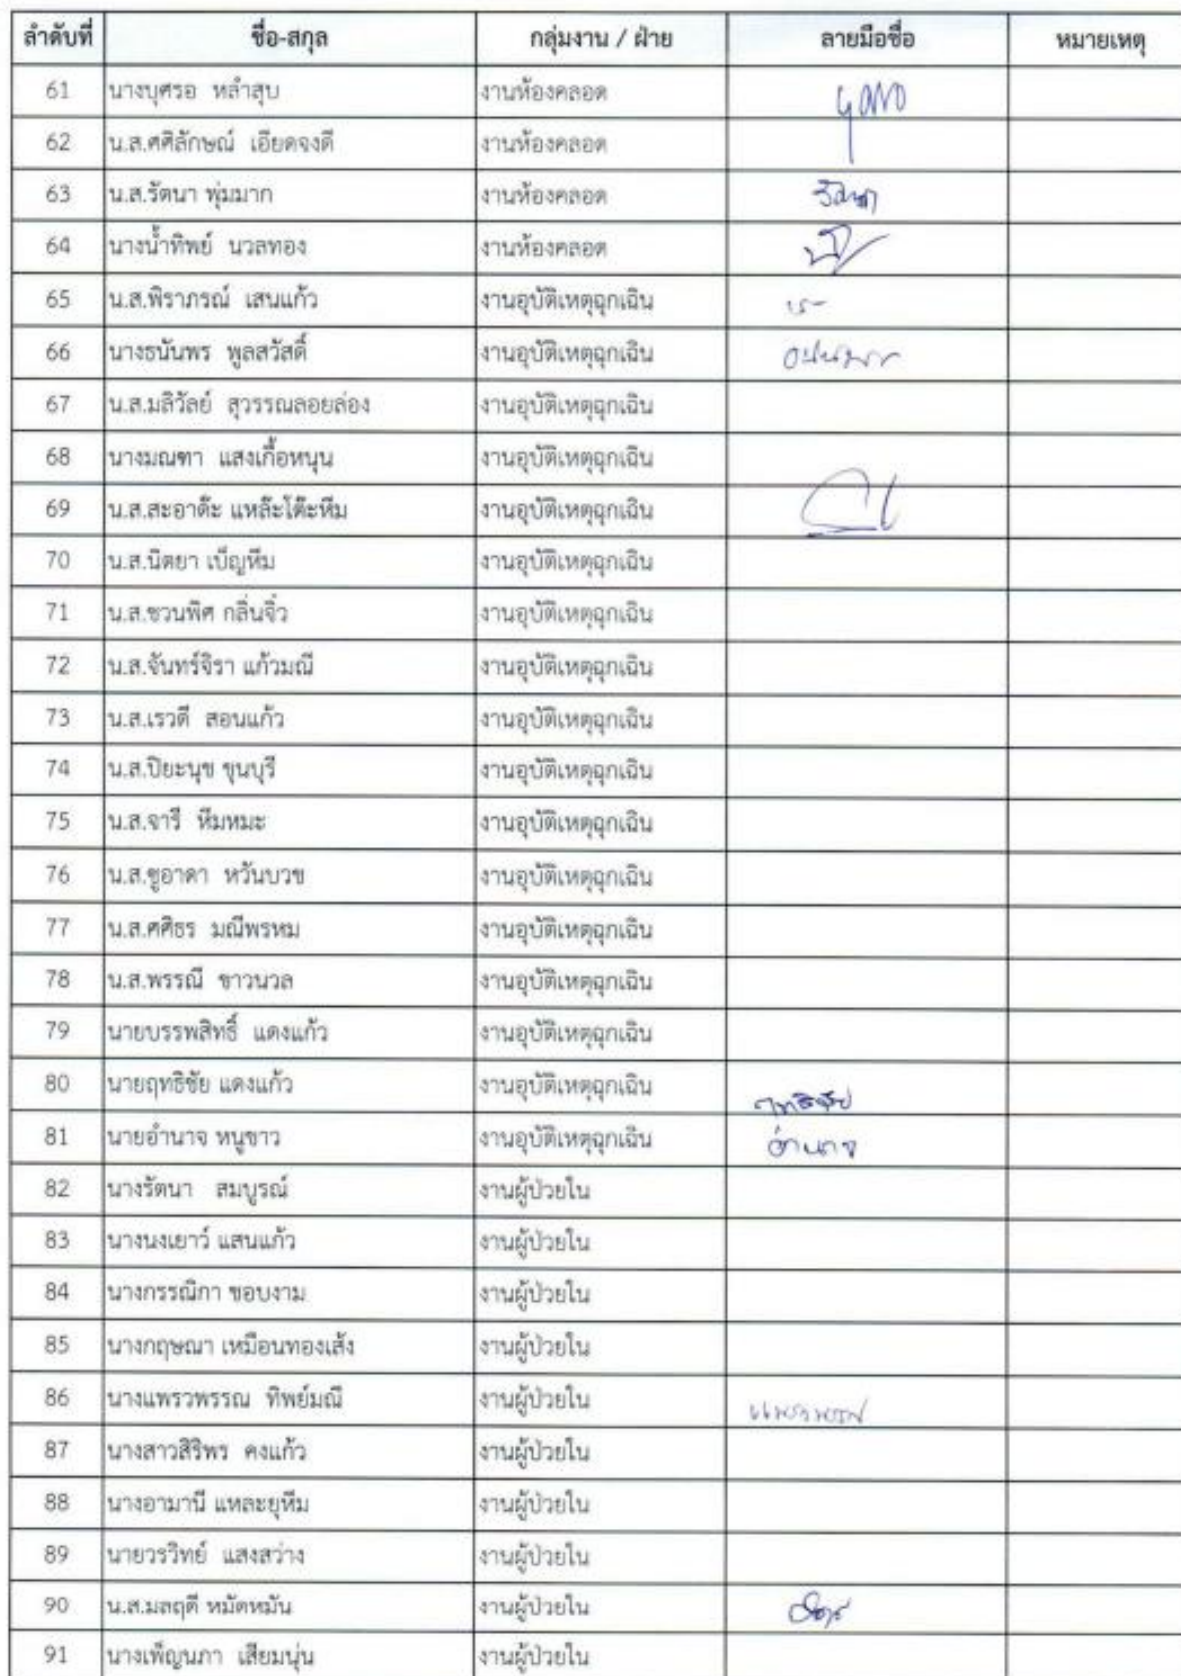 ลำดับที่ ชื่อ-สกุล กลุ่มงาน / ฝ่าย ลายมือชื่อ หมายเหตุ
61 นางบุศรอ หลำสุบ งานห้องคลอด
62 น.ส.ศศิลักษณ์ เอียดจงดี งานห้องคลอด
63 น.ส.รัตนา พุ่มมาก งานห้องคลอด รัตนา
64 นางน้ำทิพย์ นวลทอง งานห้องคลอด
65 น.ส.พิราภรณ์ เสนแก้ว งานอุบัติเหตุฉุกเฉิน
66 นางธนันพร พูลสวัสดิ์ งานอุบัติเหตุฉุกเฉิน
67 น.ส.มลิวัลย์ สุวรรณลอยล่อง งานอุบัติเหตุฉุกเฉิน
68 นางมณฑา แสงเกื้อหนุน งานอุบัติเหตุฉุกเฉิน
69 น.ส.สะอาด๊ะ แหล๊ะโต๊ะหีม งานอุบัติเหตุฉุกเฉิน
70 น.ส.นิตยา เบ็ญหีม งานอุบัติเหตุฉุกเฉิน
71 น.ส.ชวนพิศ กลิ่นจิ๋ว งานอุบัติเหตุฉุกเฉิน
72 น.ส.จันทร์จิรา แก้วมณี งานอุบัติเหตุฉุกเฉิน
73 น.ส.เรวดี สอนแก้ว งานอุบัติเหตุฉุกเฉิน
74 น.ส.ปิยะนุช ขุนบุรี งานอุบัติเหตุฉุกเฉิน
75 น.ส.จารี หีมหมะ งานอุบัติเหตุฉุกเฉิน
76 น.ส.ซูอาดา หวันบวช งานอุบัติเหตุฉุกเฉิน
77 น.ส.ศศิธร มณีพรหม งานอุบัติเหตุฉุกเฉิน
78 น.ส.พรรณี ขาวนวล งานอุบัติเหตุฉุกเฉิน
79 นายบรรพสิทธิ์ แดงแก้ว งานอุบัติเหตุฉุกเฉิน
80 นายฤทธิชัย แดงแก้ว งานอุบัติเหตุฉุกเฉิน ฤทธิชัย
81 นายอำนาจ หนูขาว งานอุบัติเหตุฉุกเฉิน อำนาจ
82 นางรัตนา สมบูรณ์ งานผู้ป่วยใน
83 นางนงเยาว์ แสนแก้ว งานผู้ป่วยใน
84 นางกรรณิกา ชอบงาม งานผู้ป่วยใน
85 นางกฤษณา เหมือนทองเส้ง งานผู้ป่วยใน
86 นางแพรวพรรณ ทิพย์มณี งานผู้ป่วยใน แพรวพรรณ
87 นางสาวสิริพร คงแก้ว งานผู้ป่วยใน
88 นางอามานี แหละยุหีม งานผู้ป่วยใน
89 นายวรวิทย์ แสงสว่าง งานผู้ป่วยใน
90 น.ส.มลฤดี หมัดหมัน งานผู้ป่วยใน
91 นางเพ็ญนภา เสียมนุ่น งานผู้ป่วยใน